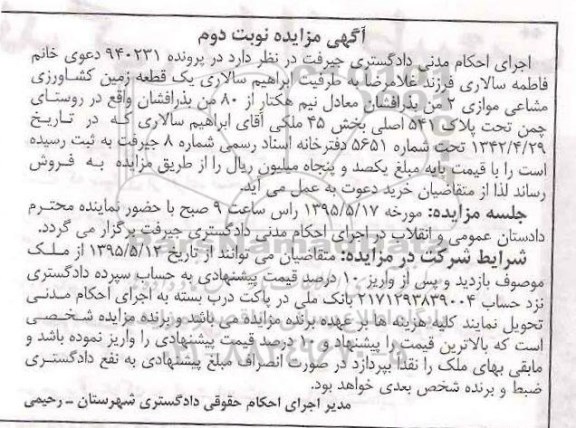 آگهی مزایده نوبت دوم
اجرای احکام مدنی دادگستری جیرفت در نظر دارد در پرونده ۹۴۰۲۳۱ دعوی خانم
فاطمه سالاری فرزند غلامرضا به طرفیت ابراهیم سالاری یک قطعه زمین کشاورزی
مشاعی موازی ۲ من بذرافشان معادل نیم هکتار از ۸۰ من بذرافشان واقع در روستای
چمن تحت پلاک ۵۴۲ اصلی بخش ۴۵ ملکی آقای ابراهیم سالاری که در تاریخ
۱۳۴۲/۴/۲۹ تحت شماره ۵۶۵۱ دفترخانه اسناد رسمی شماره ۸ جیرفت به ثبت رسیده
است را با قیمت پایه مبلغ یکصد و پنجاه میلیون ریال را از طریق مزایده به فروش
رساند لذا از متقاضیان خرید دعوت به عمل می آید.
جلسه مزایده: مورخه ۱۳۹۵/۵/۱۷ راس ساعت ۹ صبح با حضور نماینده محترم
دادستان عمومی و انقلاب در اجرای احکام مدنی دادگستری جیرفت برگزار می گردد.
شرایط شرکت در مزایده: متقاضیان می توانند از تاریخ ۱۳۹۵/۵/۱۲ از ملک
موصوف بازدید و پس از واریز ۱۰ درصد قیمت پیشنهادی به حساب سپرده دادگستری
نزد حساب ۲۱۷۱۲۹۳۸۳۹۰۰۴ بانک ملی در پاکت درب بسته به اجرای احکام مدنی
تحویل نمایند کلیه هزینه ها بر عهده برنده مزایده می باشد و برنده مزایده شخصی
است که بالاترین قیمت را پیشنهاد و ۱۰ درصد قیمت پیشنهادی را واریز نموده باشد و
مابقی بهای ملک را نقدا بپردازد در صورت انصراف مبلغ پیشنهادی به نفع دادگستری
ضبط و برنده شخص بعدی خواهد بود.
مدیر اجرای احکام حقوقی دادگستری شهرستان ـ رحیمی